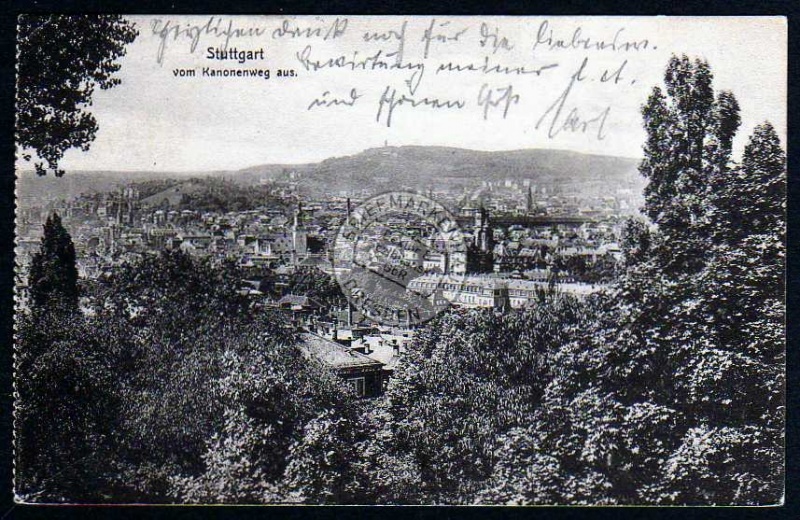 Herzlichen Dank noch für die liebensw.
Bewirtung meiner
und schönen Gruß
Karl
Stuttgart
vom Kanonenweg aus.